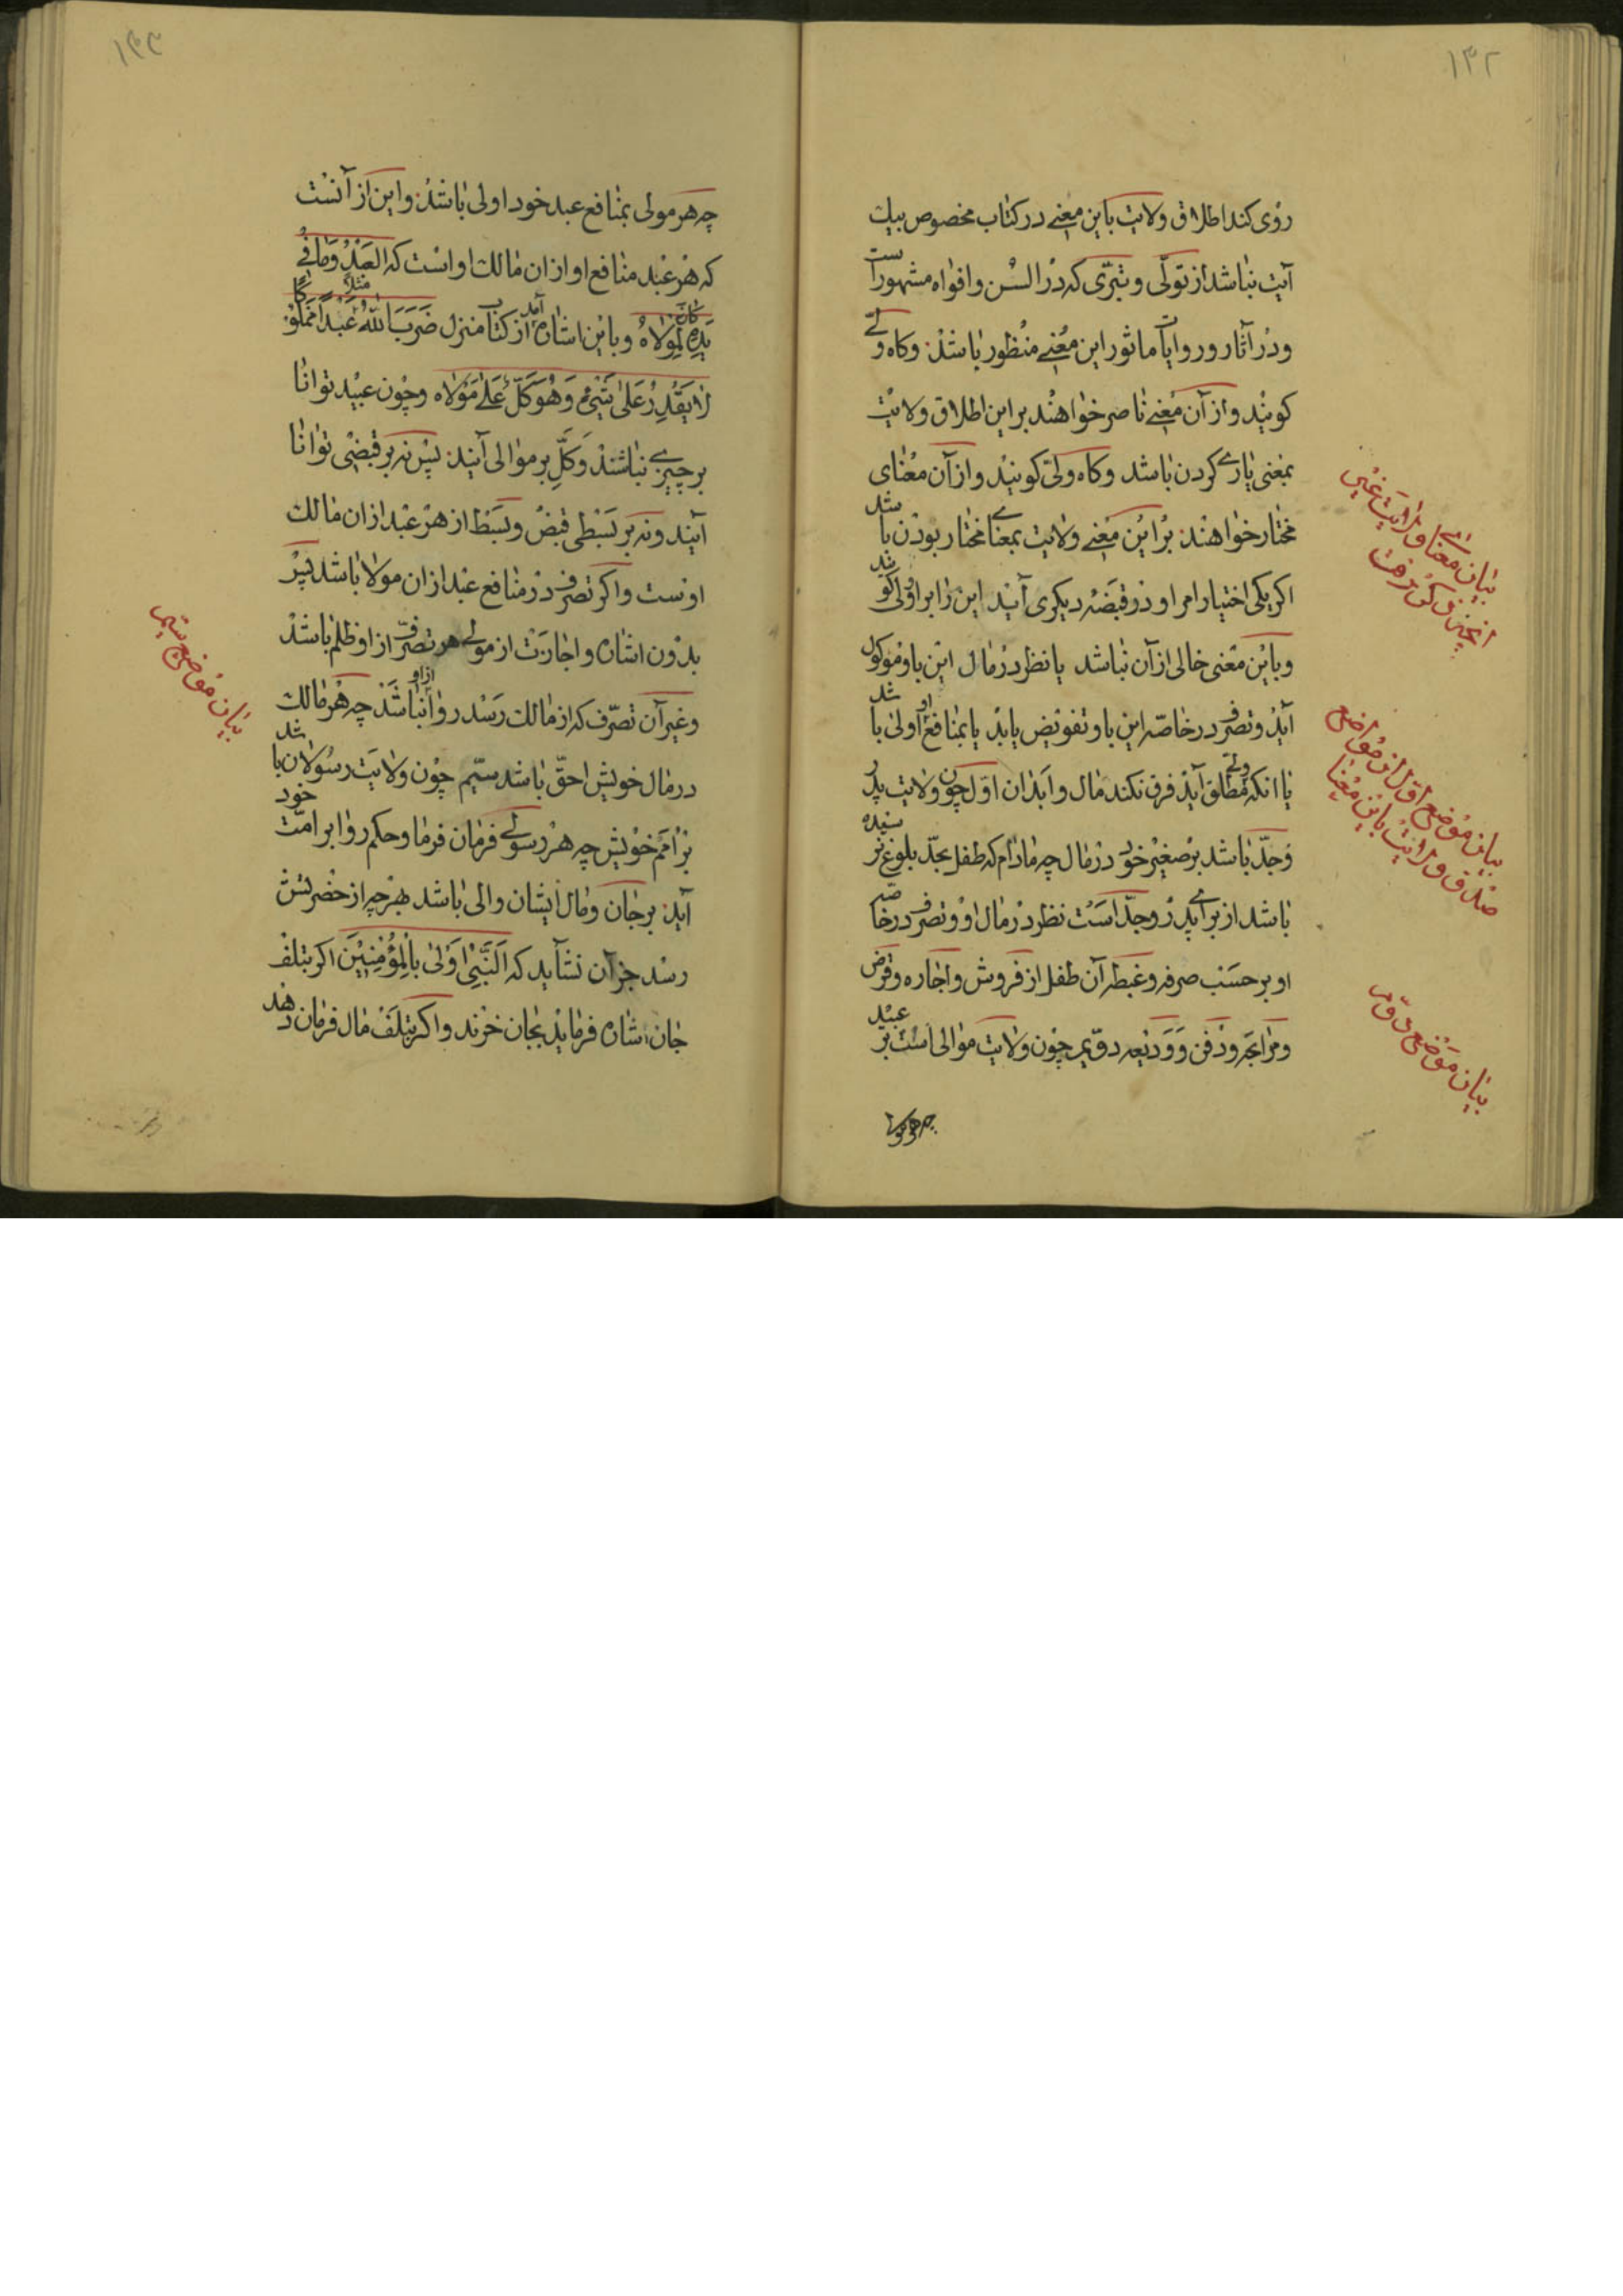 ۱۳۲
روی کند اطلاق ولایت باین معنے در کتاب مخصوص بیك
آیت نباشد از تولّی و تبرّی که در السن و افواه مشهور است
و در آثار و روایات ماثور این معنے منظور باشد و کاه ولے
کویند و از آن معنے ناصر خواهند بر این اطلاق ولایت
بمعنی یارے کردن باشد و کاه ولیّ کویند و از آن معنای
مختار خواهند بر این معنے ولایت بمعناے مختار بودن باشد
اکر یکی اختیار امر او در قبضه دیکری آید این را بر او ولی کو
و باین معنی خالی از آن نباشد یا نظر در مال این باو موکول
آید و تصرف در خاصّه این باو تفویض یابد یا بمنافع او اولی باشد
یا انکه ولیّ مطلق آید فرق نکند مال و ابدان اوّل چون ولایت پدر
و جدّ باشد بر صغیر خود در مال چه مادام که طفل بحدّ بلوغ نرسیده
باشد از براے پدر و جدّ است نظر در مال او و تصرف در خاصّه
او بر حسب صرفه و غبطه آن طفل از فروش و اجاره و قرض
و مرابحه و دفن و ودیعه دویم چون ولایت موالی است بر عبید
چه هر مولی
بیان معناے ولایت غیر
انچیزی کی کذشت
بیان موضع اوّل از مواضع
صدق ولایت باین معنا
بیان موضع دوّم
۱۳۳
چه هر مولی بمنافع عبد خود اولی باشد و این از آنست
که هر عبد منافع او از ان مالك او است که العَبْدُ وَمَا فِے
یَدِهِ کَانَ لِمَوْلَاهُ و باین اشاره آمد از کتاب منزل ضَرَبَ اللّٰهُ مَثَلًا عَبْدًا مَمْلُوکًا
لَا یَقْدِرُ عَلیٰ شَیْءٍ وَهُوَ کَلٌّ عَلےٰ مَوْلَاهُ و چون عبید توانا
بر چیزے نباشند و کَلّ بر موالی آیند پس نه بر قبضی توانا
آیند و نه بر بسطی قبض و بسط از هر عبد از ان مالك
اوست و اکر تصرف در منافع عبد از ان مولا باشد پس
بدون اشاره و اجازت از مولے هر تصرّف از او ظلم باشد
و غیر آن تصرّف که از مالك رسد از او روا نباشد چه هر مالك
در مال خویش احقّ باشد سیّم چون ولایت رسولان باشد
بر امم خویش چه هر رسولے فرمان فرما و حکم روا بر امّت خود
آید بر جان و مال ایشان والی باشد هر چه از حضرتش
رسد جز آن نشاید که اَلنَّبِیُّ اَوْلیٰ بِالْمُؤْمِنِیْنَ اکر بتلف
جان اشاره فرماید بجان خرند و اکر بتلف مال فرمان دهد
بیان موضع سیّم